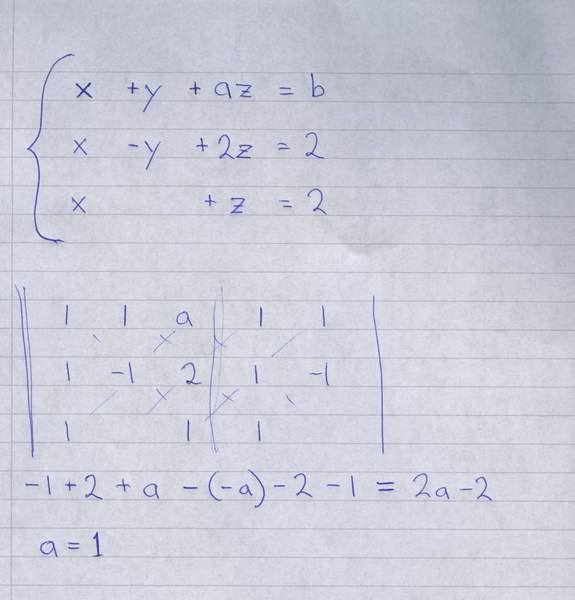 x + y + az = b
x - y + 2z = 2
x + z = 2
1 1 a | 1 1
1 -1 2 | 1 -1
1 1 | 1
-1 + 2 + a - (-a) - 2 - 1 = 2a - 2
a = 1